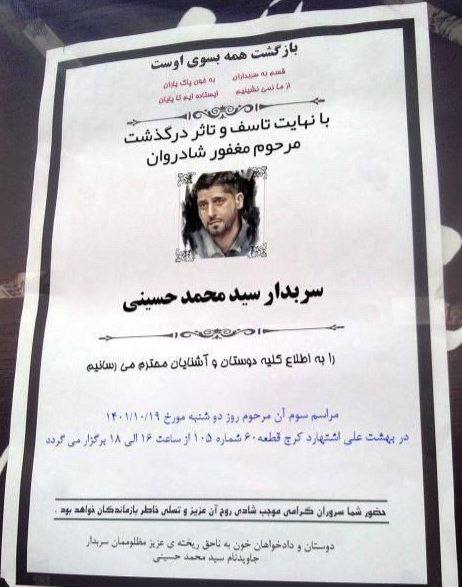 بازگشت همه بسوی اوست
قسم به سربداران به خون پاک یاران
از ما نمی نشینیم ایستاده ایم تا پایان
با نهایت تاسف و تاثر درگذشت
مرحوم مغفور شادروان
سربدار سید محمد حسینی
را به اطلاع کلیه دوستان و آشنایان محترم می رسانیم
مراسم سوم آن مرحوم روز دوشنبه مورخ ۱۴۰۱/۱۰/۱۹
در بهشت علی اشتهارد کرج قطعه ۶۰ شماره ۱۰۵ از ساعت ۱۶ الی ۱۸ برگزار می گردد
حضور شما سروران گرامی موجب شادی روح آن عزیز و تسلی خاطر بازماندگان خواهد بود .
دوستان و دادخواهان خون به ناحق ریخته ی عزیز مظلوممان سربدار
جاویدنام سید محمد حسینی